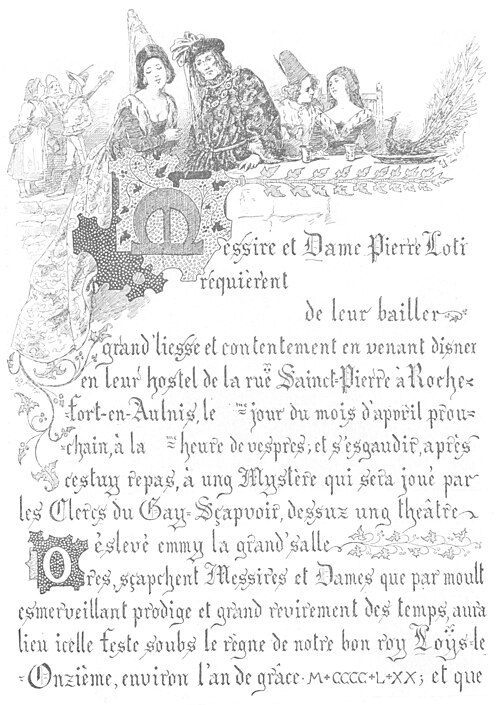 Messire et Dame Pierre Loti
requièrent
de leur bailler
grand'liesse et contentement en venant disner
en leur hostel de la ruë Sainct-Pierre à Roche=
=fort-en-Aulnis, le =me jour du mois d'apvril prou=
=chain, à la =me heure de vespres; et s'esgaudir, après
cestuy repas, à ung Mystère qui sera joué par
les Clercs du Gay-Sçapvoir, dessuz ung theâtre
éslevé emmy la grand'salle
Ores, sçapchent Messires et Dames que par moult
esmerveillant prodige et grand revirement des temps, aura
lieu icelle feste soubs le règne de notre bon roy Loÿs-le
=Onzième, environ l'an de grâce M+CCCC+L+XX; et que